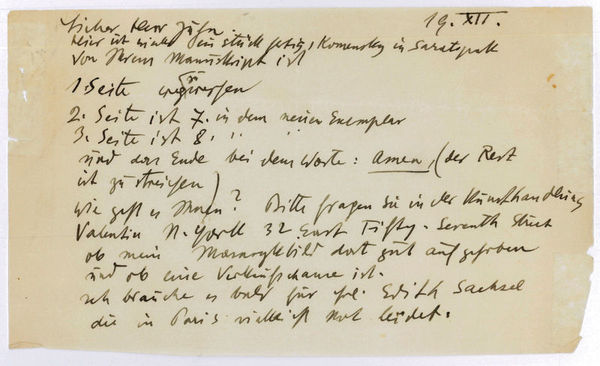 Lieber Herr Jühn 19. XII.
Hier ist wieder ein Stück fertig, Komensky in Saratspatk
von Ihrem Manuskript ist
1. Seite wegzuwerfen
2. Seite ist 7. in dem neuen Exemplar
3. Seite ist 8. " "
und das Ende bei dem Worte: Amen, (der Rest
ist zu streichen)
Wie geht es Ihnen? Bitte fragen Sie in der Kunsthandlung
Valentin N. York 32 East Fifty-Seventh Street
ob mein Masarykbild dort gut aufgehoben
und ob eine Verkaufschance ist.
Ich brauche es bald für Frl. Edith Sachsel
die in Paris vielleicht Not leidet.